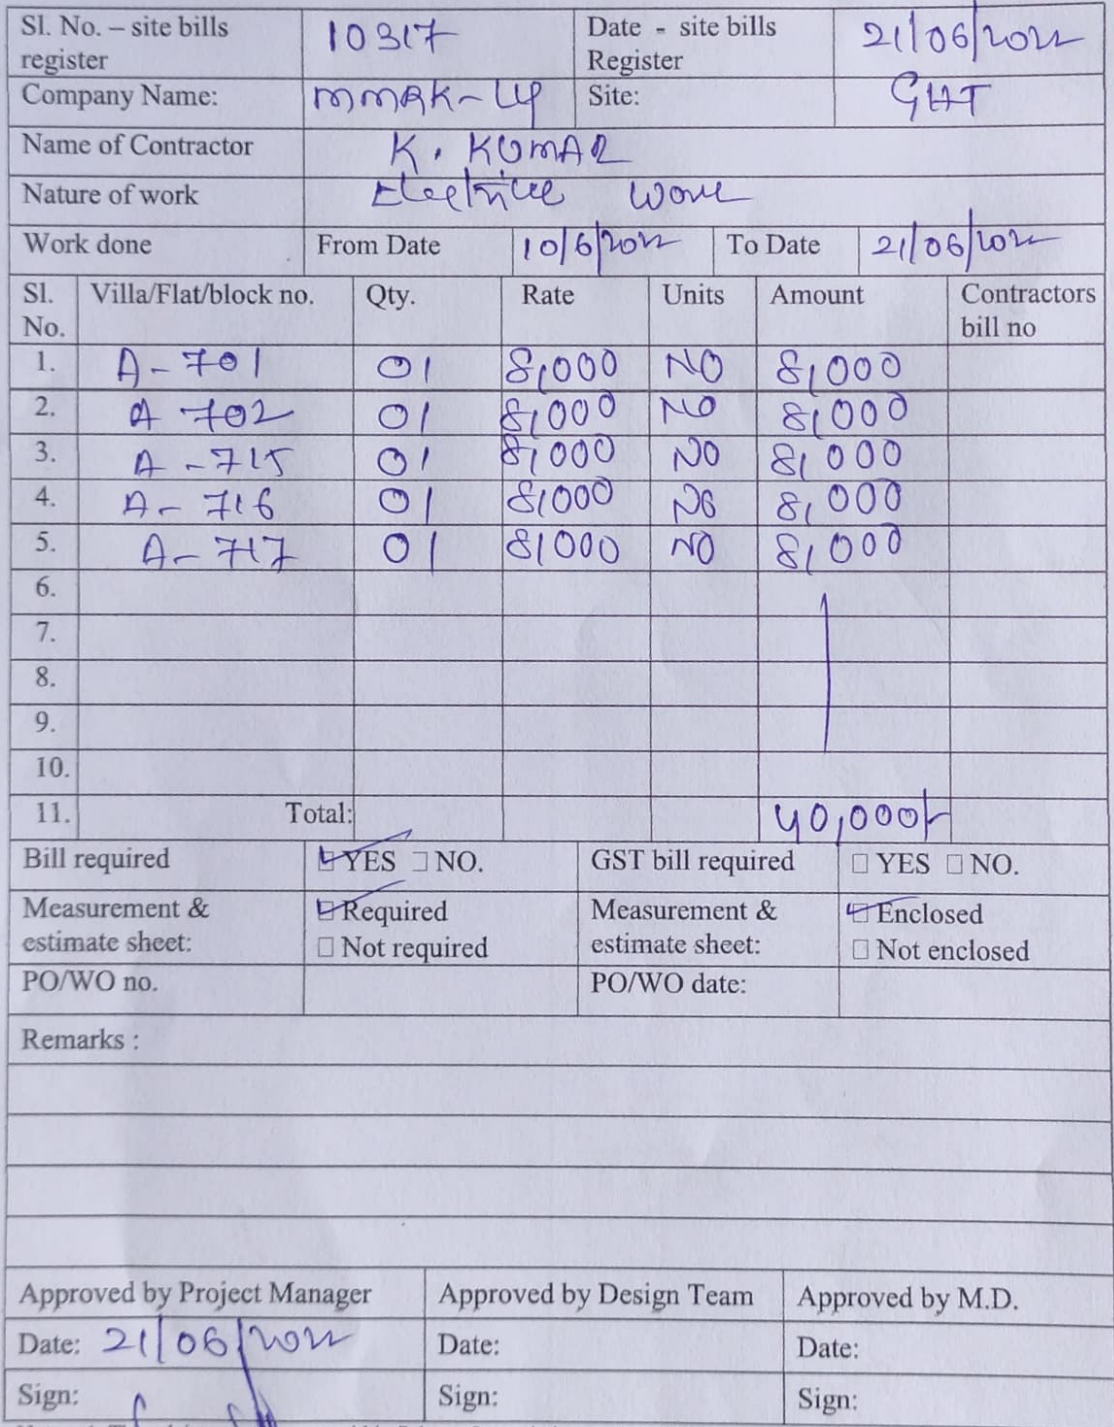 Sl. No. – site bills register 10317 Date - site bills Register 21/06/2022
Company Name: MMRK-LLP Site: GHT
Name of Contractor K. KUMAR
Nature of work Electrice Work
Work done From Date 10/6/2022 To Date 21/06/2022
Sl. No. Villa/Flat/block no. Qty. Rate Units Amount Contractors bill no
1. A-701 01 8,000 NO 8,000
2. A 702 01 8,000 NO 8,000
3. A-715 01 8,000 NO 8,000
4. A-716 01 8,000 NO 8,000
5. A-717 01 8,000 NO 8,000
6.
7.
8.
9.
10.
11. Total: 40,000/-
Bill required ☑ YES ☐ NO. GST bill required ☐ YES ☐ NO.
Measurement & estimate sheet: ☑ Required ☐ Not required Measurement & estimate sheet: ☑ Enclosed ☐ Not enclosed
PO/WO no. PO/WO date:
Remarks :
Approved by Project Manager Approved by Design Team Approved by M.D.
Date: 21/06/2022 Date: Date:
Sign: Sign: Sign: